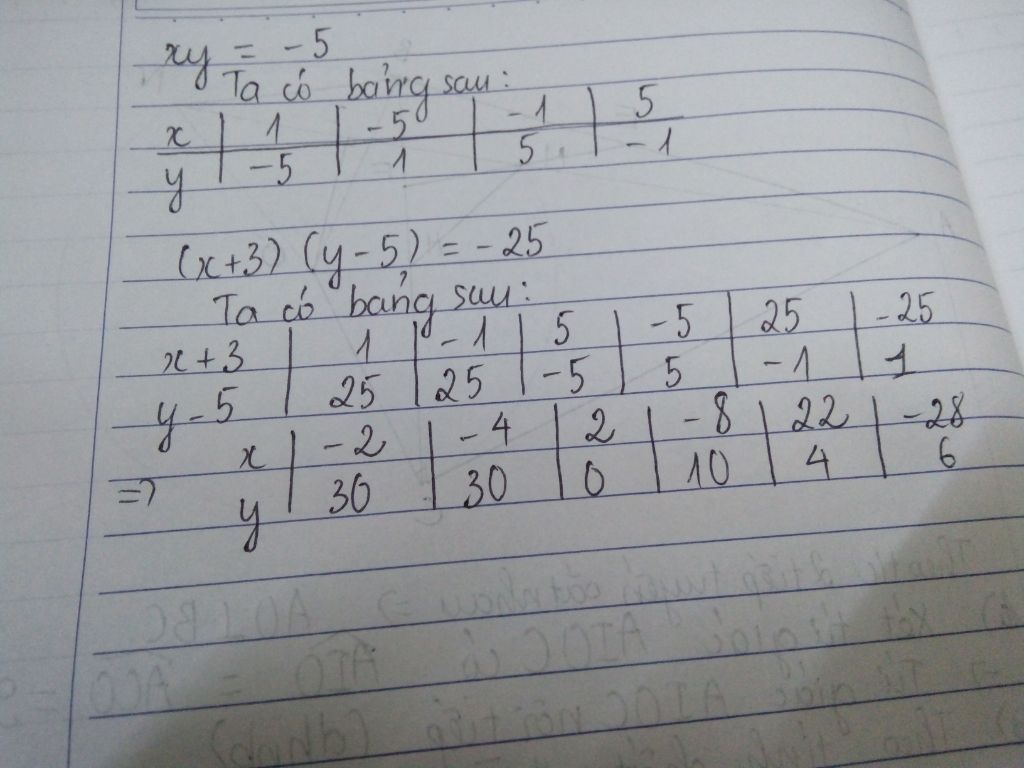 xy = -5
Ta có bảng sau:
x | 1 | -5 | -1 | 5
y | -5 | 1 | 5 | -1
(x+3) (y-5) = -25
Ta có bảng sau:
x+3 | 1 | -1 | 5 | -5 | 25 | -25
y-5 | 25 | 25 | -5 | 5 | -1 | 1
x | -2 | -4 | 2 | -8 | 22 | -28
=> y | 30 | 30 | 0 | 10 | 4 | 6